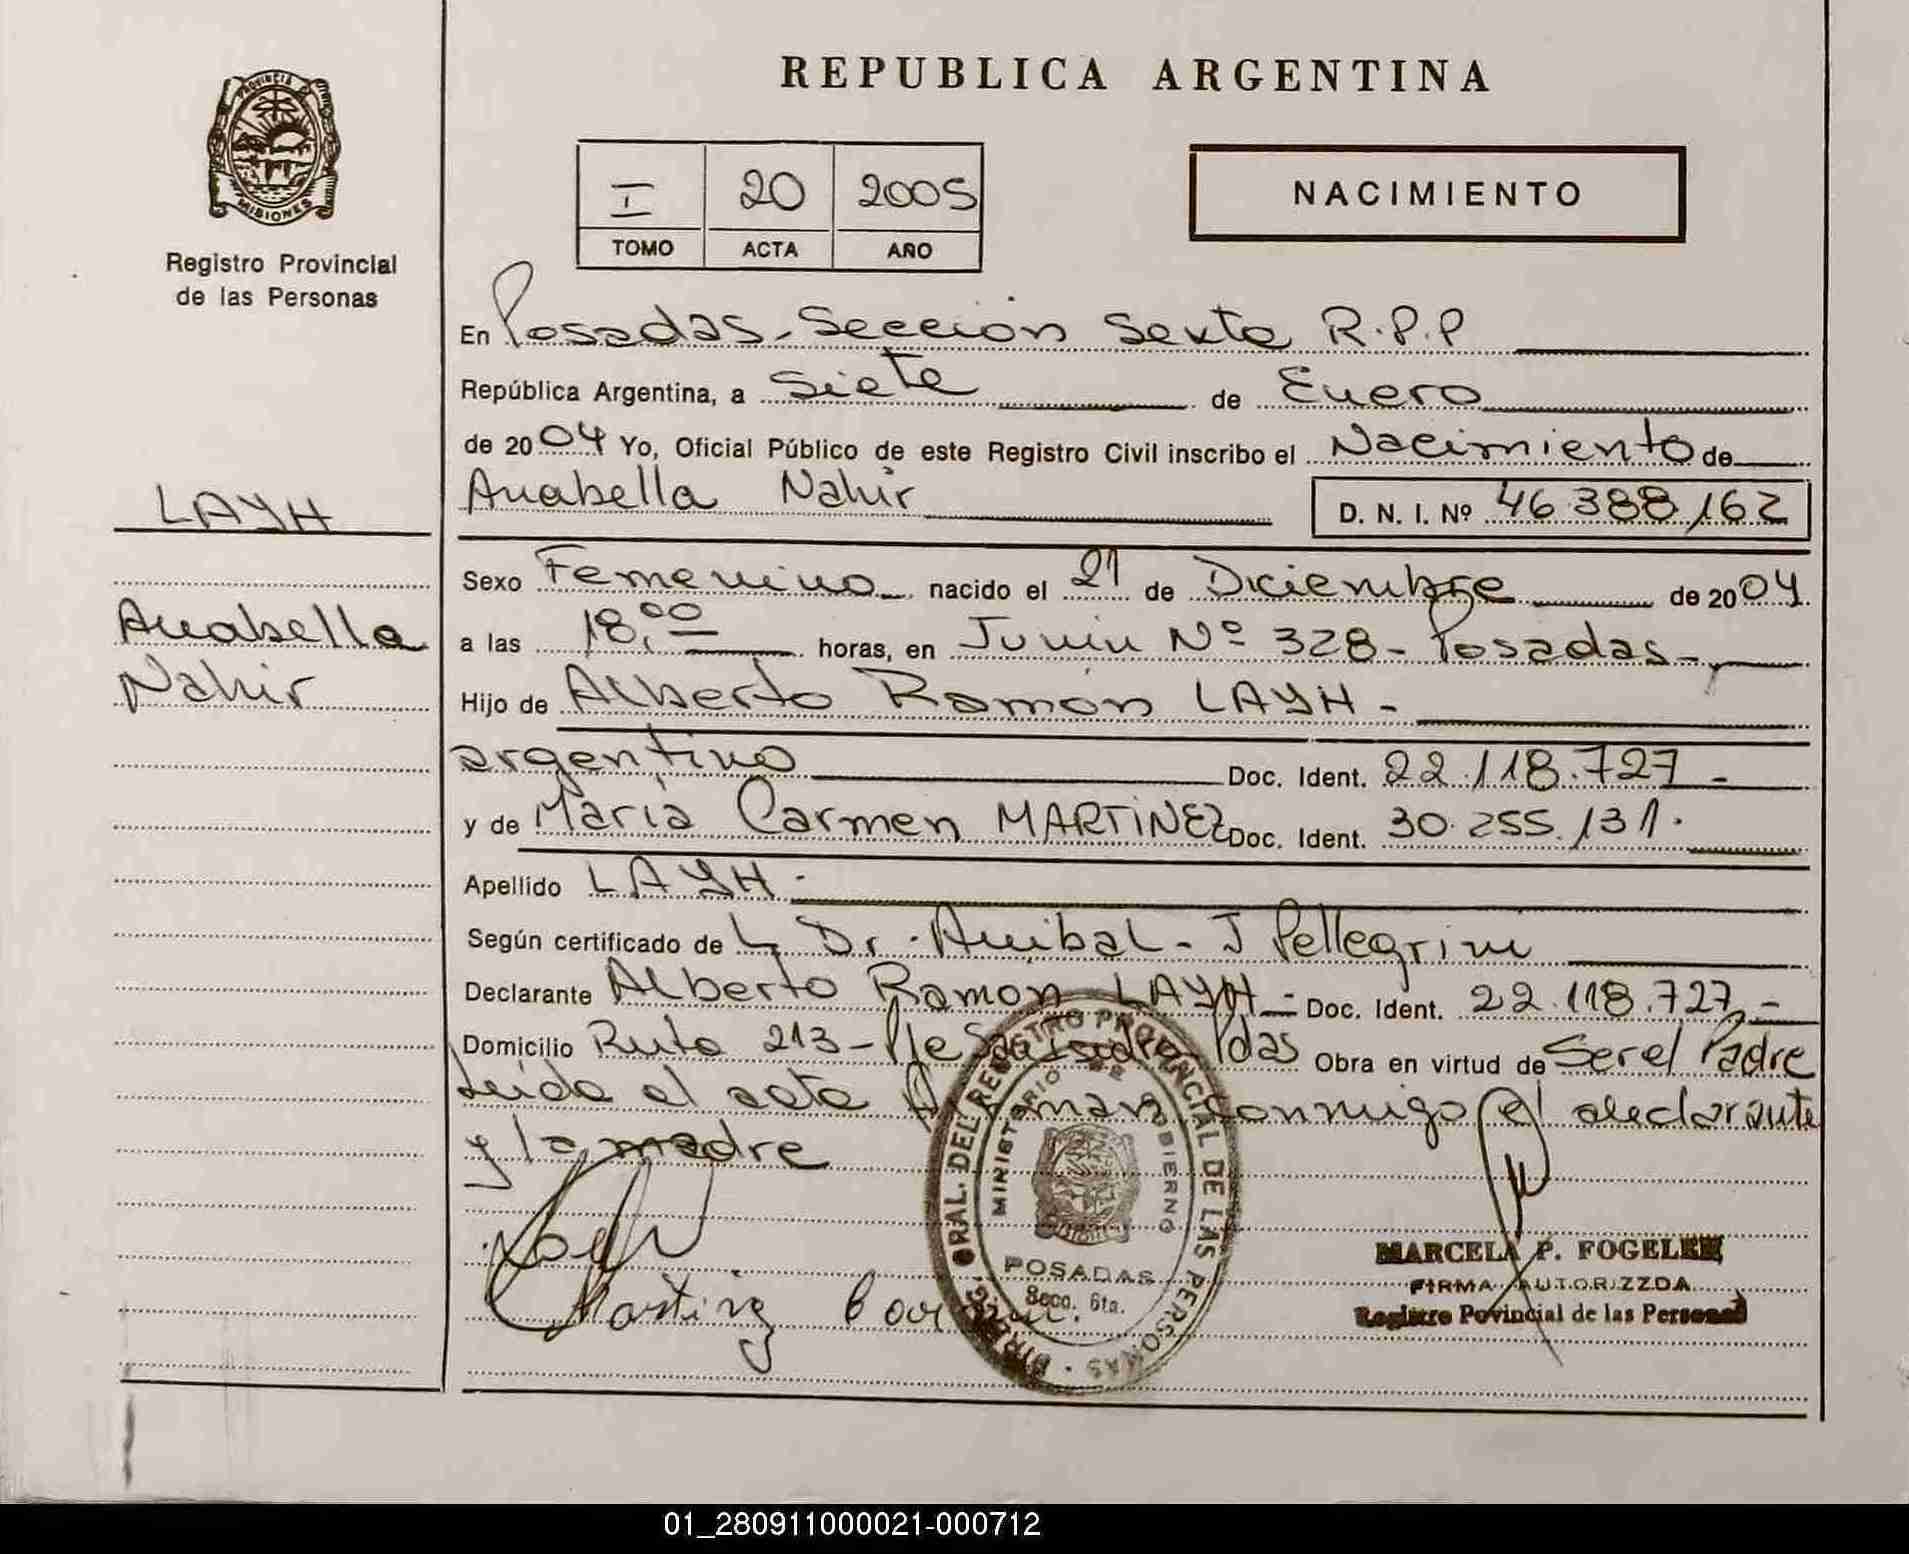 REPUBLICA ARGENTINA
PROVINCIA DE
MISIONES
Registro Provincial
de las Personas
I 20 2005
TOMO ACTA AÑO
NACIMIENTO
En Posadas - Sección Sexta R.P.P
República Argentina, a Siete de Enero
de 2004 Yo, Oficial Público de este Registro Civil inscribo el Nacimiento de
Anabella Nahir D. N. I. Nº 46 388 162
LAYH
Anabella
Nahir
Sexo Femenino nacido el 21 de Diciembre de 2004
a las 18,00 horas, en Junín Nº 328 - Posadas -
Hijo de Alberto Ramón LAYH -
argentino Doc. Ident. 22.118.727 -
y de María Carmen MARTINEZ Doc. Ident. 30.255.131.
Apellido LAYH -
Según certificado de Dr. Anibal - J Pellegrini
Declarante Alberto Ramón LAYH - Doc. Ident. 22.118.727 -
Domicilio Ruta 213 - Pdas Obra en virtud de Ser el Padre
Leída el acta conmigo el declarante
y la madre
DIREC. GRAL. DEL REGISTRO PROVINCIAL DE LAS PERSONAS
MINISTERIO DE GOBIERNO
POSADAS
Secc. 6ta.
Martinez
MARCELA P. FOGELER
FIRMA AUTORIZZDA
Registro Povincial de las Personas
01_280911000021-000712